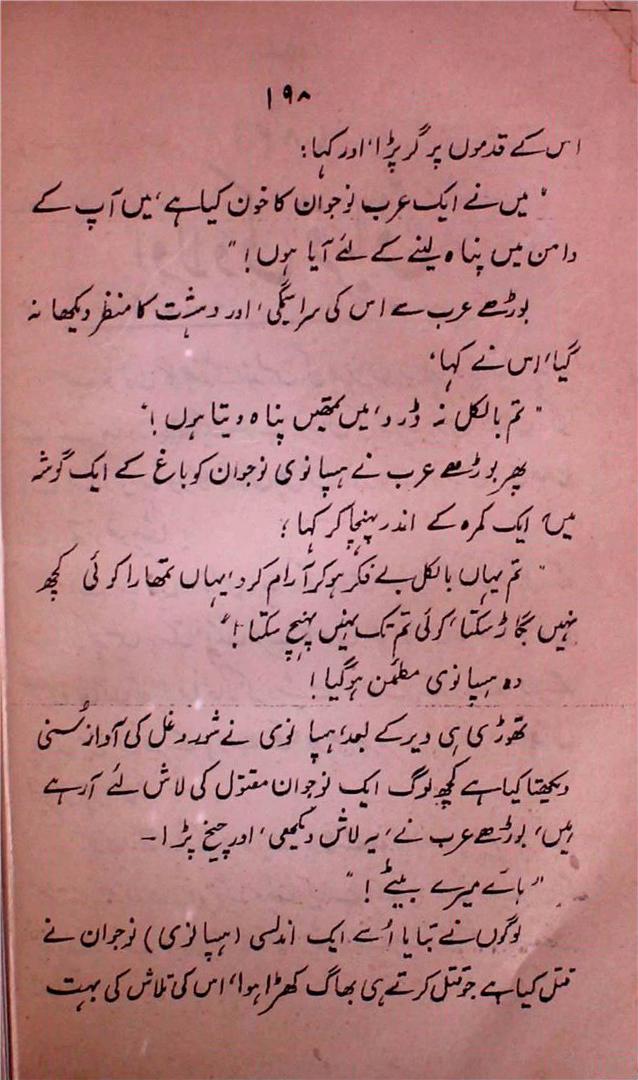 ۱۹۸
اس کے قدموں پر گر پڑا، اور کہا:
"میں نے ایک عرب نوجوان کا خون کیا ہے، میں آپ کے
دامن میں پناہ لینے کے لئے آیا ہوں!"
بوڑھے عرب سے اس کی سراسیمگی، اور دہشت کا منظر دیکھا نہ
گیا، اس نے کہا،
"تم بالکل نہ ڈرو، میں تمھیں پناہ دیتا ہوں!"
پھر بوڑھے عرب نے ہسپانوی نوجوان کو باغ کے ایک گوشہ
میں، ایک کمرہ کے اندر پہنچا کر کہا؛
"تم یہاں بالکل بے فکر ہو کر آرام کرو، یہاں تمھارا کوئی کچھ
نہیں بگاڑ سکتا، کوئی تم تک نہیں پہنچ سکتا!"
وہ ہسپانوی مطمئن ہو گیا!
تھوڑی ہی دیر کے بعد، ہسپانوی نے شور و غل کی آواز سُنی
دیکھتا کیا ہے کچھ لوگ ایک نوجوان مقتول کی لاش لئے آ رہے
ہیں، بوڑھے عرب نے، یہ لاش دیکھی، اور چیخ پڑا۔-
"ہائے میرے بیٹے!"
لوگوں نے بتایا اُسے ایک اندلسی (ہسپانوی) نوجوان نے
قتل کیا ہے جو قتل کرتے ہی بھاگ کھڑا ہوا، اس کی تلاش کی بہت